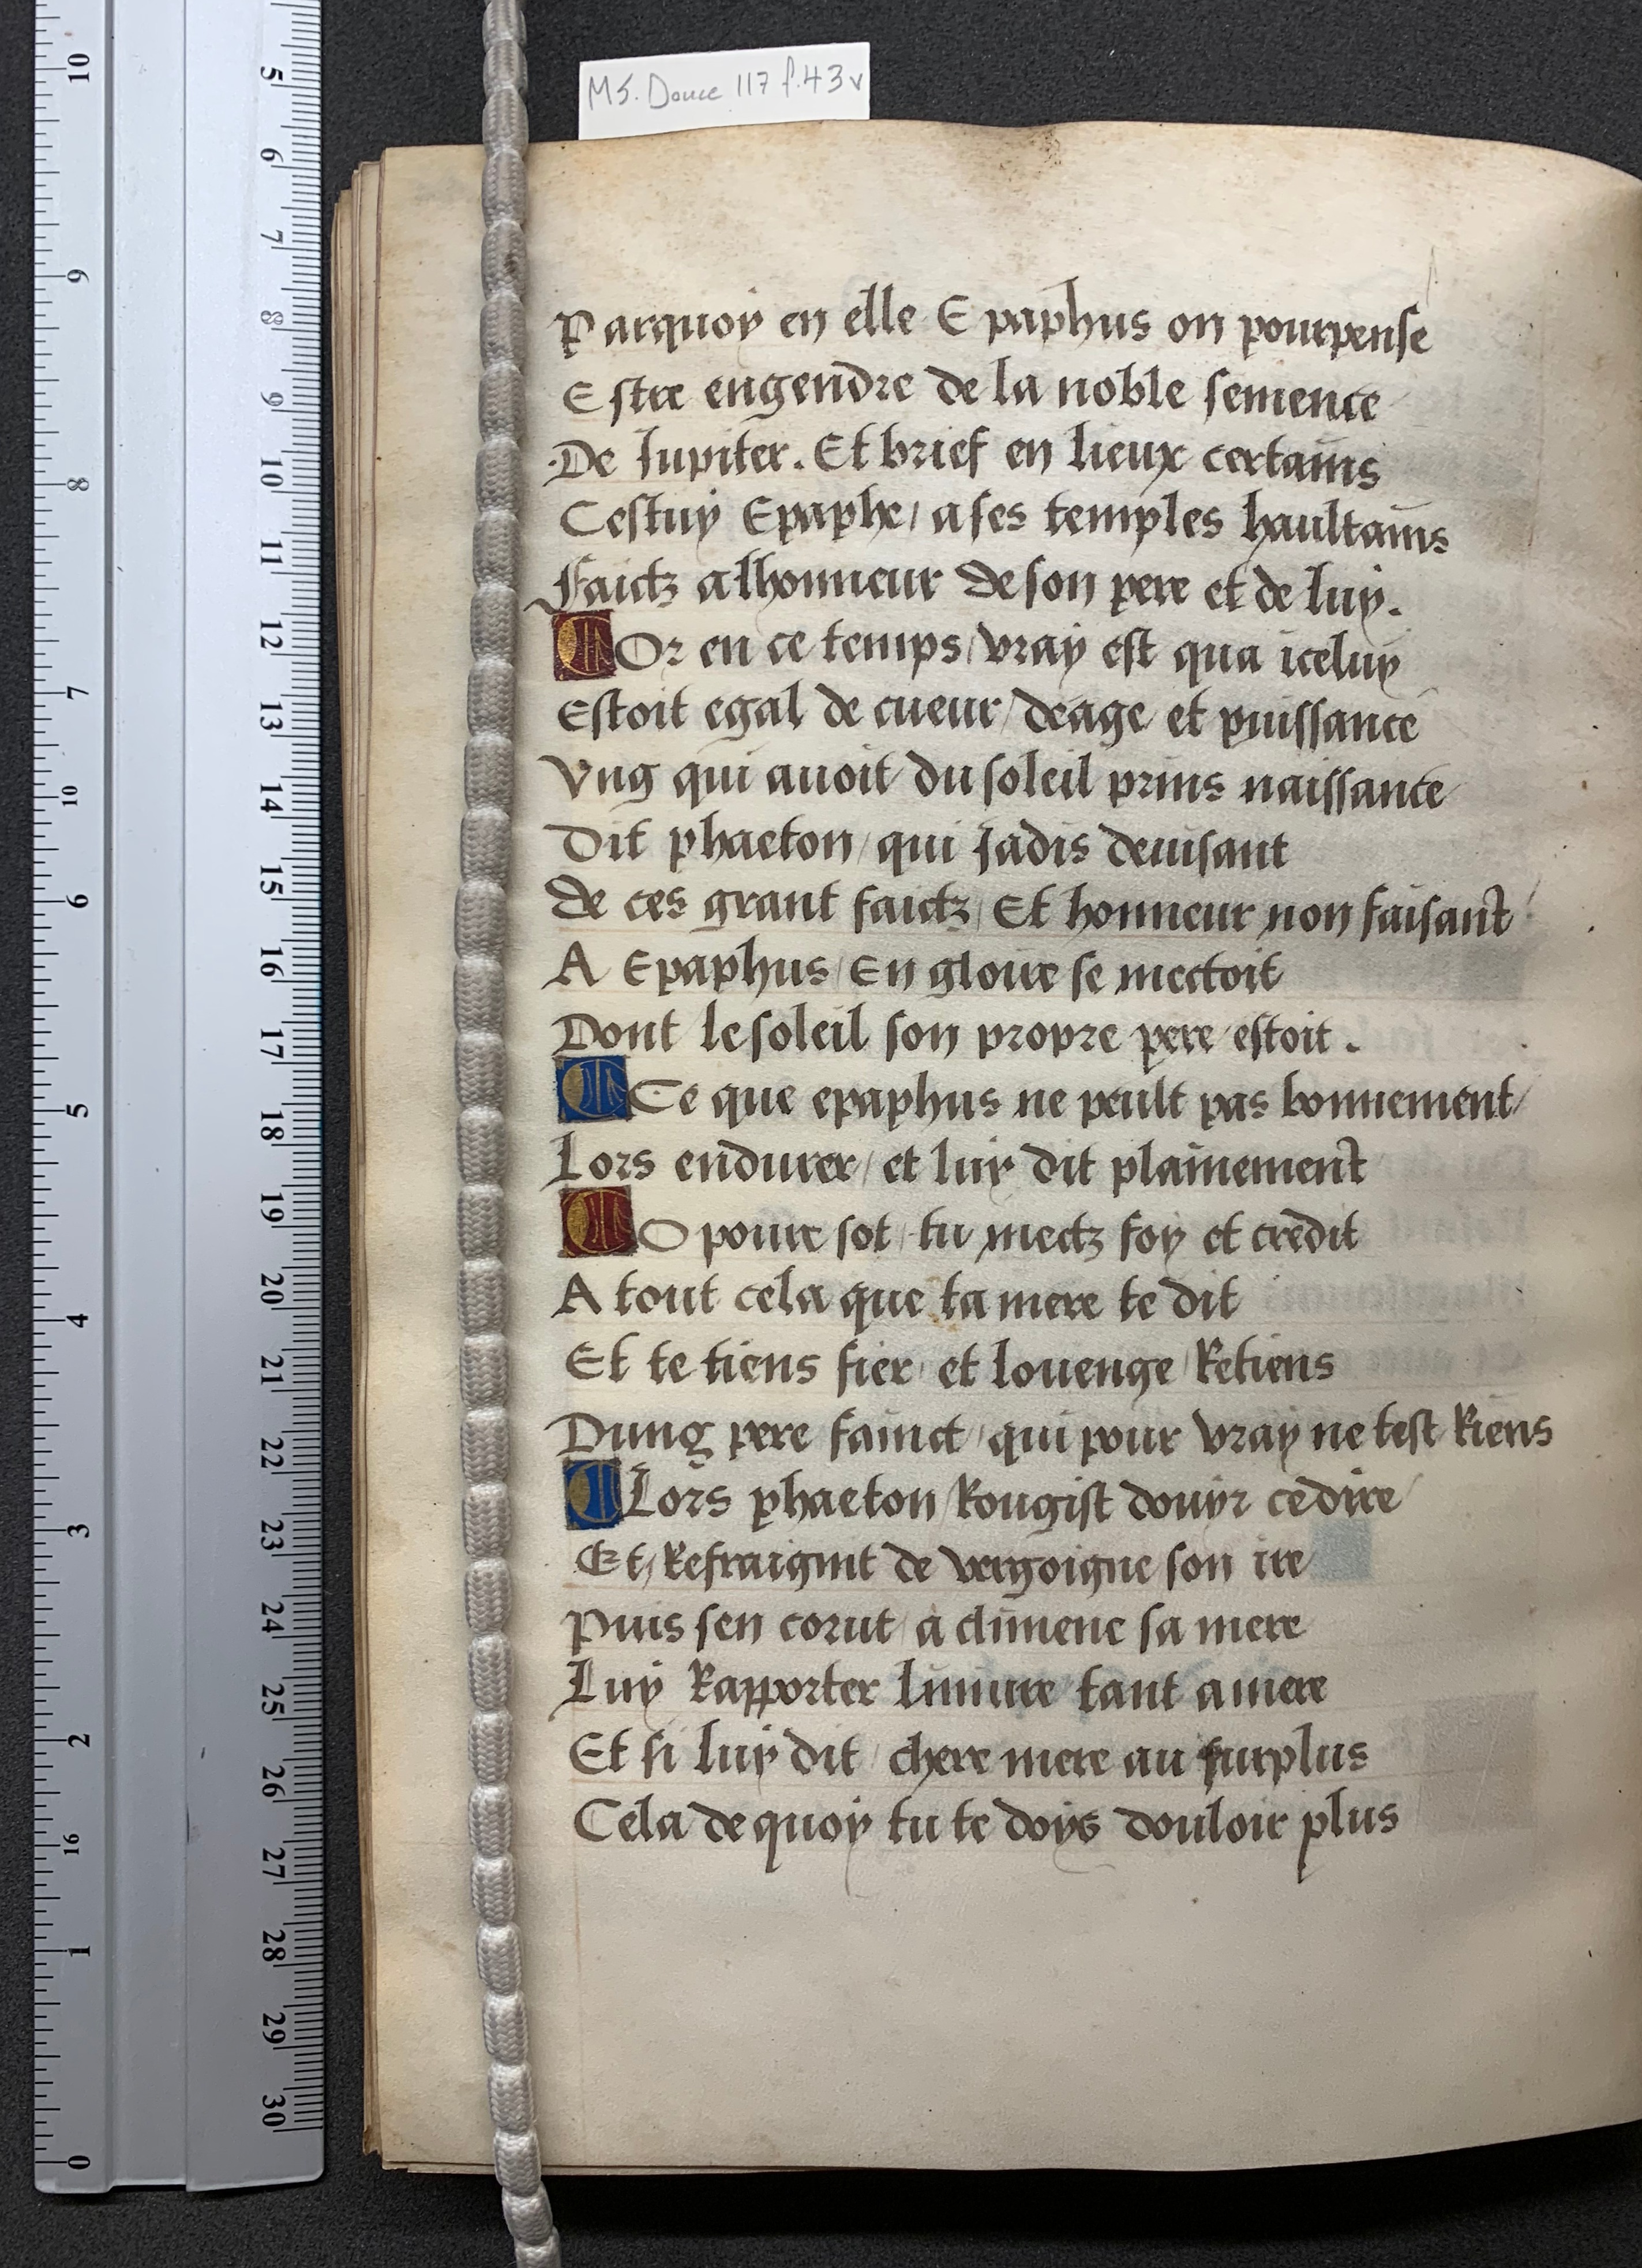 MS. Douce 117 f.43v
Parquoy en elle Epaphus on pourpense
Estre engendre de la noble semence
De Jupiter. Et brief en lieux certains
Cestuy Epaphe/ a ses temples haultains
Faictz a lhonneur de son pere et de luy.
¶ Or en ce temps/ vray est qua iceluy
Estoit egal de cueur/ deage et puissance
Vng qui auoit du soleil prins naissance
Dit phaeton/ qui Jadis deuisant
de ces grant faictz/ Et honneur non faisant
A Epaphus/ En gloire se mectoit
Dont le soleil son propre pere estoit.
¶ Ce que epaphus ne peult pas bonnement/
Lors endurer/ et luy dit plainement
¶ O poure sot/ tu mectz foy et credit
A tout cela que ta mere te dit
Et te tiens fier/ et louenge Retiens
Dung pere fainct/ qui pour vray ne test Riens
¶ Lors phaeton/ Rougist douyr ce dire
Et/ Refraignit de vergoigne son ire
Puis sen corut/ a climene sa mere
Luy Rapporter liniure tant amere
Et si luy dit/ chere mere au surplus
Cela de quoy tu te doys douloir plus
10
9
8
7
6
5
4
3
2
1
0
5
6
7
8
9
10
11
12
13
14
15
16
17
18
19
20
21
22
23
24
25
26
27
28
29
30
10
16